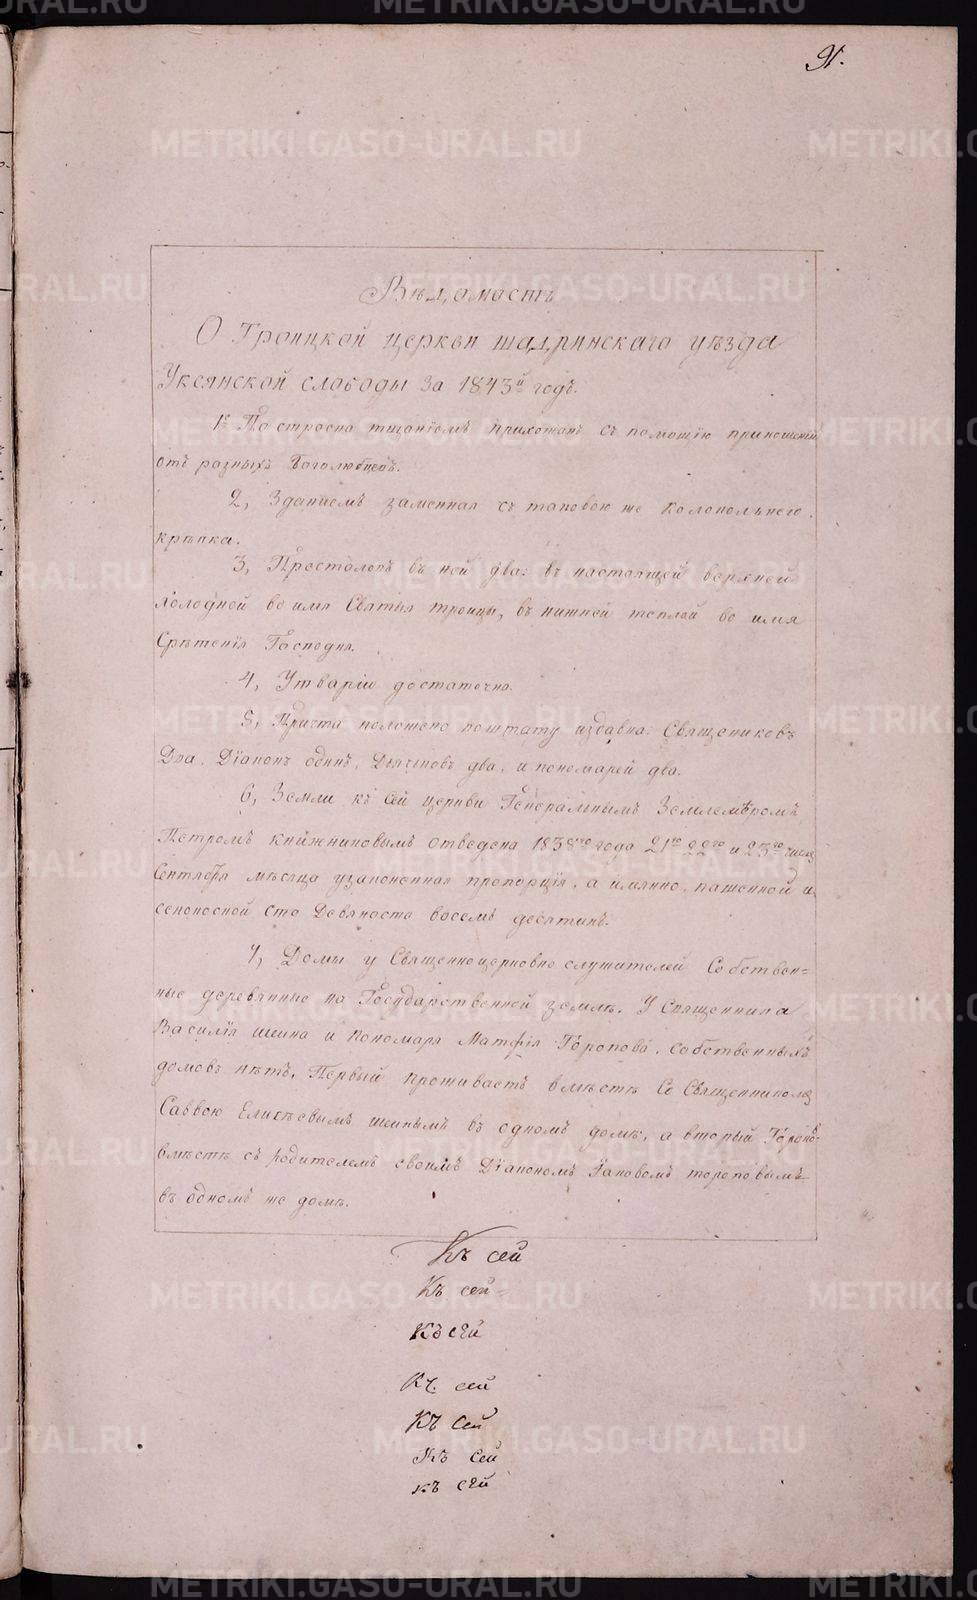 91.
Вѣдомость
О Троицкой церкви шадринскаго уѣзда
Уксянской слободы за 1843й годъ.
1е Построена тщанïемъ прихожанъ съ помощïю приношенïй
отъ разныхъ Боголюбцевъ.
2, Зданïемъ каменная съ таковою же колокольнею,
крѣпка.
3, Престоловъ въ ней два: въ настоящей верхней
холодной во имя Святыя троицы, въ нижней теплой во имя
Срѣтенïя Господня.
4, Утварïю достаточна.
5, Причта положено поштату издавна: Священиковъ
Два, Дïаконъ одинъ, Дьячковъ два, и пономарей два.
6, Земли къ сей церкви Генеральнымъ Землемѣромъ
Петромъ княжниковымъ отведена 1838го года 21го 22го и 23го чиселъ
Сентября мѣсяца узаконенная пропорцïя, а имянно, пашенной и
сенокосной сто Девяносто восемь десятинъ.
7, Домы у Священноцерковнослужителей Собствен=
ные деревянные на Государственной землѣ. У Священника
Василïя шеина и Пономаря Матфïя Торопова, собственныхъ
домовъ нѣтъ, Первый проживаетъ вмѣстѣ Со Священникомъ
Саввою Елисѣевымъ шеинымъ въ одномъ домѣ, а вторый Тороповъ
вмѣстѣ съ родителемъ своимъ Дïакономъ Iаковомъ тороповымъ
въ одномъ же домѣ.
Къ сей
Къ сей=
Къ сей
Къ сей
Къ сей
Къ сей
къ сей
METRIKI.GASO-URAL.RU